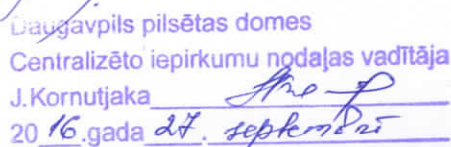 Daugavpils pilsētas domes
Centralizēto iepirkumu nodaļas vadītāja
J.Kornutjaka
20 16.gada 27. septembrī